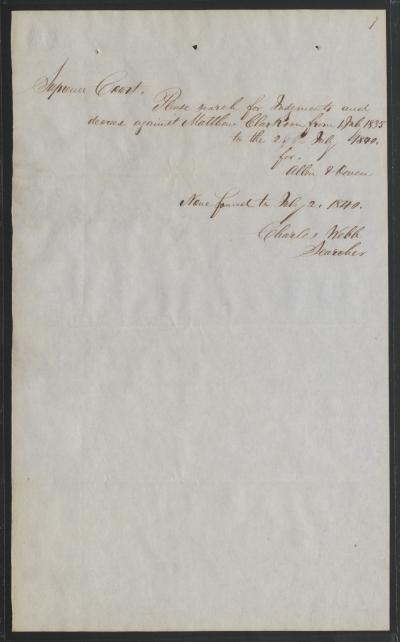 1
Supreme Court.
Please search for Judgments and
decrees against Matthew Clarkson from 1 Feb 1835
to the July 1840.
for.
Allen &
None found to July 2. 1840.
Charles Webb
Searcher